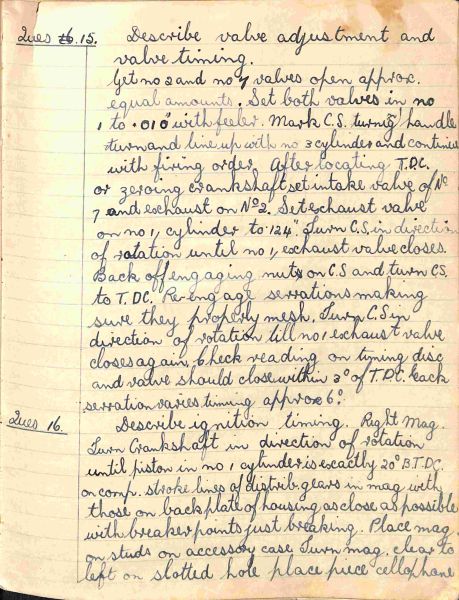 Ques 15. Describe valve adjustment and
valve timing.
Get no 2 and no 7 valves open approx.
equal amounts. Set both valves in no
1 to .010" with feeler. Mark C.S. turning handle
turn and line up with no 3 cylinder and continue
with firing order. After locating T.D.C.
or zeroing crankshaft set intake valve of No
7 and exhaust on No 2. Set exhaust valve
on no 1, cylinder to 124". Turn C.S. in direction
of rotation until no 1, exhaust valve closes.
Back off engaging nuts on C.S and turn C.S.
to T.D.C. Re-engage serrations making
sure they properly mesh. Turn C.S in
direction of rotation till no 1 exhaust valve
closes again. Check reading on timing disc
and valve should close within 3° of T.D.C. Each
serration varies timing approx 6°.
Ques 16. Describe ignition timing. Right Mag.
Turn Crankshaft in direction of rotation
until piston in no 1 cylinder is exactly 20° B.T.D.C.
on comp. stroke lines of distrib. gears in mag with
those on backplate of housing as close as possible
with breaker points just breaking. Place mag
on studs on accessory case Turn mag. clear to
left on slotted hole place piece cellophane